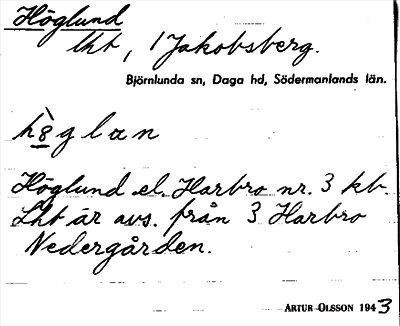 Höglund
lht, 1 Jakobsberg.
Björnlunda sn, Daga hd, Södermanlands län.
hö̀glan
Höglund el. Harbro nr. 3 kb.
Lht är avs. från 3 Harbro
Nedergården.
ARTUR OLSSON 1943